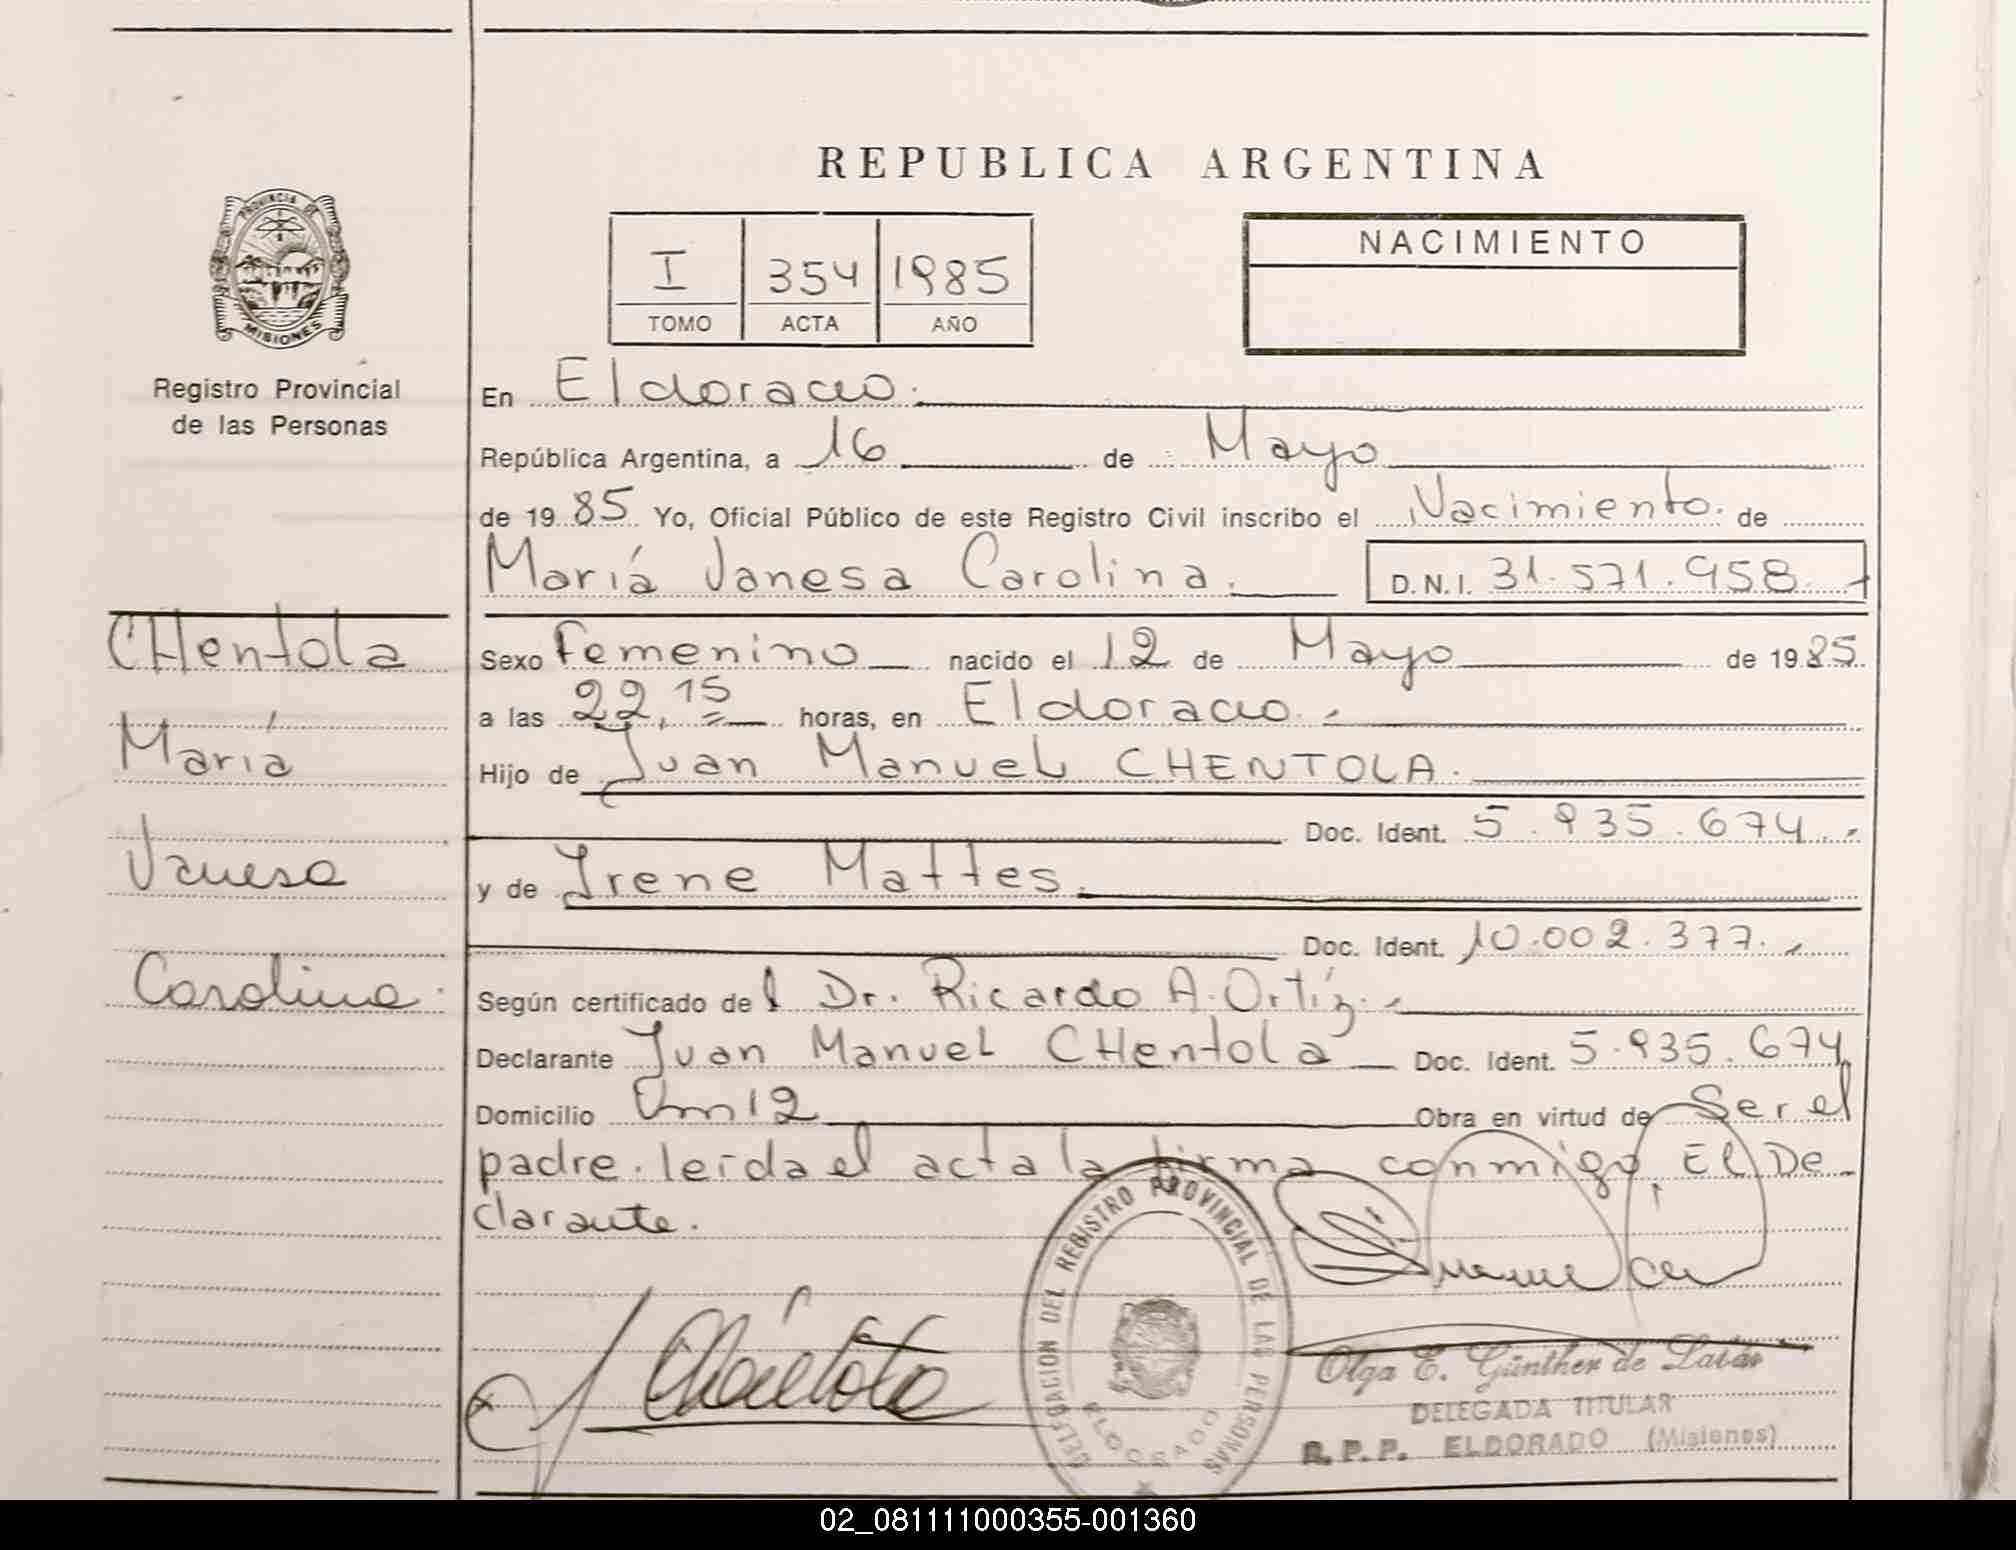 REPUBLICA ARGENTINA
PROVINCIA DE
MISIONES
Registro Provincial
de las Personas
I 354 1985
TOMO ACTA AÑO
NACIMIENTO
En Eldorado.
República Argentina, a 16 de Mayo
de 1985 Yo, Oficial Público de este Registro Civil inscribo el Nacimiento. de
María Vanesa Carolina. D.N.I. 31.571.958.
CHentola
María
Vanesa
Carolina.
Sexo Femenino nacido el 12 de Mayo de 1985
a las 22,15 horas, en Eldorado.
Hijo de Juan Manuel CHENTOLA.
Doc. Ident. 5.935.674.
y de Irene Mattes.
Doc. Ident. 10.002.377.
Según certificado del Dr. Ricardo A. Ortíz.
Declarante Juan Manuel CHentola Doc. Ident. 5.935.674
Domicilio Km 12 Obra en virtud de Ser el
padre. leída el acta la firma conmigo, El De-
clarante.
DELEGACION DEL REGISTRO PROVINCIAL DE LAS PERSONAS
ELDORADO
Olga E. Günther de
DELEGADA TITULAR
R. P. P. ELDORADO (Misiones)
02_081111000355-001360